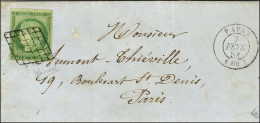 Monsieur
Aumont-Thiéville,
19, Boulevart St Denis,
Paris
PARIS
FEVR
(60)